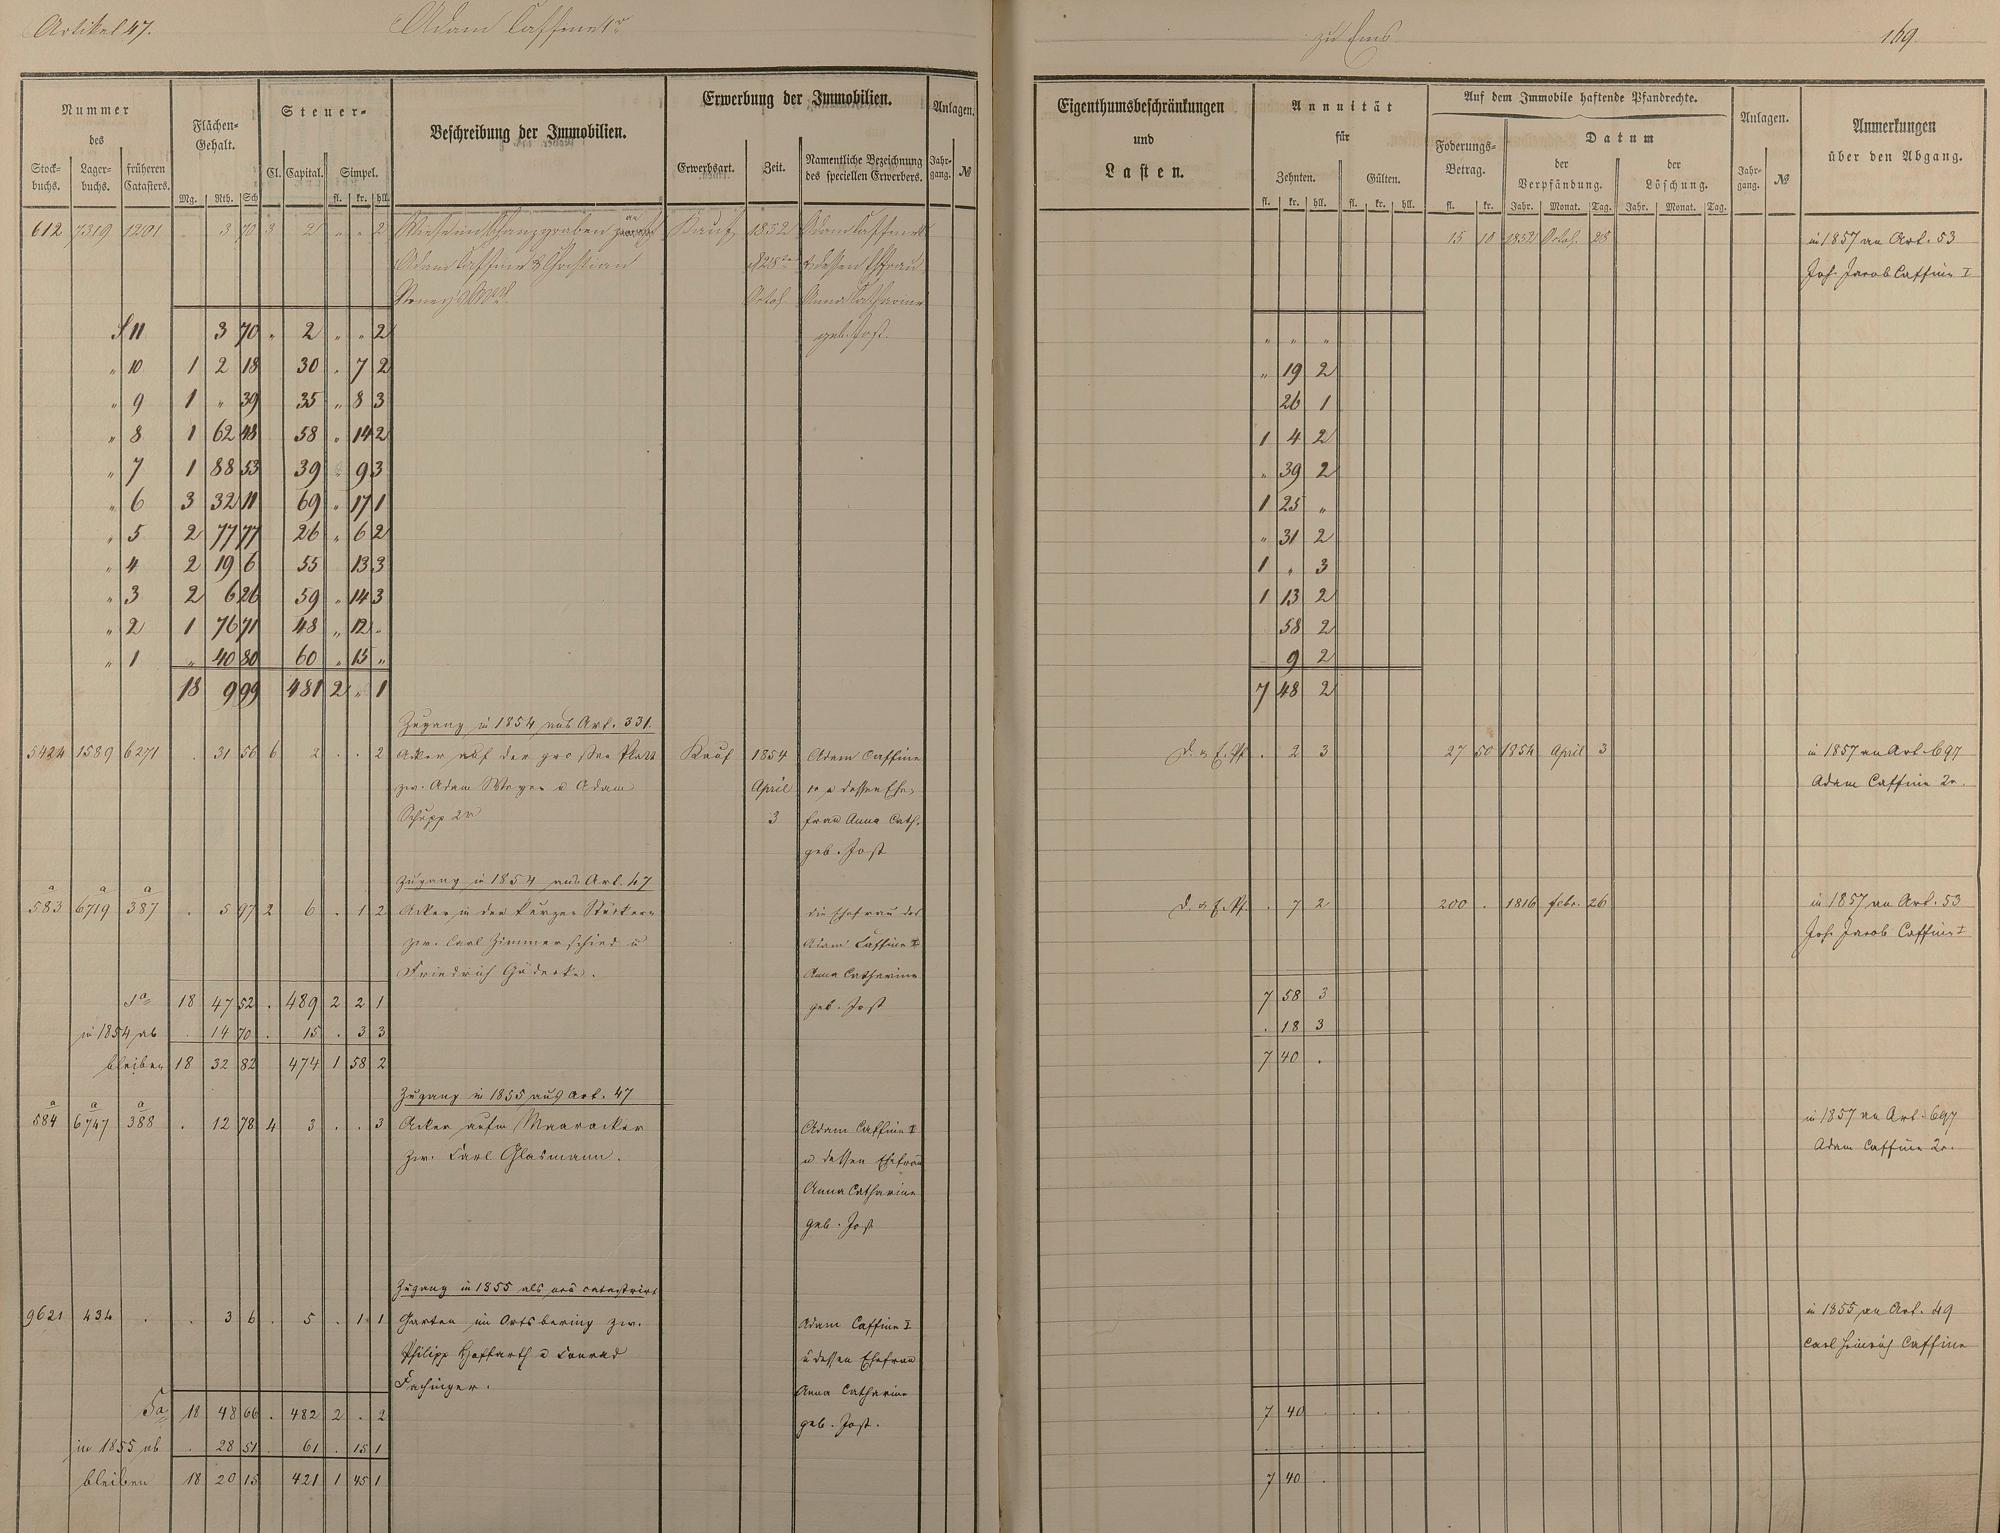 Artikel 47. Adam Caffine 1r zu Ems 169.
Nummer des
Stockbuchs. Lagerbuchs. früheren Catasters.
Flächen-Gehalt.
Mg. Rth. Sch
Steuer-
Cl. Capital. Simpel.
fl. kr. hll.
Beschreibung der Immobilien.
Erwerbung der Immobilien.
Erwerbsart. Zeit. Namentliche Bezeichnung des speciellen Erwerbers.
Anlagen.
Jahrgang. №
Eigenthumsbeschränkungen
und
Lasten.
Annuität
für
Zehnten. Gülten.
fl. kr. hll. fl. kr. hll.
Auf dem Immobile haftende Pfandrechte.
Foderungs-Betrag.
fl. kr.
Datum
der Verpfändung. der Löschung.
Jahr. Monat. Tag. Jahr. Monat. Tag.
Anlagen.
Jahrgang. №
Anmerkungen
über den Abgang.
612 7319 1201 . 3 70 3 2 " " 2 Kauf 1832 Adam Caffine 15 10 1832 Octob. 28 in 1857 an Art. 53
Adam Caffine & Christian 28 & dessen Ehefrau Joh. Jacob Caffine I
Octob. Anna Catharine
S 11 3 70 " 2 " " 2 geb. Jost. " " "
" 10 1 2 18 30 . 7 2 " 19 2
" 9 1 " 39 35 " 8 3 26 1
" 8 1 62 48 58 " 14 2 1 4 2
" 7 1 88 53 39 " 9 3 " 39 2
" 6 3 32 11 69 " 17 1 1 25 "
" 5 2 77 77 26 " 6 2 " 31 2
" 4 2 19 6 55 13 3 1 " 3
" 3 2 6 26 59 " 14 3 1 13 2
" 2 1 76 71 48 " 12 " 58 2
" 1 " 40 80 60 " 15 " 9 2
18 9 99 481 2 " 1 7 48 2
Zugang in 1854 aus Art. 331.
5424 1589 6271 . 31 56 6 2 . . 2 Acker auf der großen Platt Kauf 1854 Adam Caffine D. & E. Pf. . 2 3 27 50 1854 April 3 in 1857 an Art. 697
zw. Adam Meyer u Adam April u dessen Ehe- Adam Caffine 2r.
Schupp 2r 3 frau Anna Cath.
geb. Jost
Zugang in 1854 aus Art. 47
583a 6719a 387a . 5 97 2 6 . 1 2 Acker in den kurzen Stücken die Ehefrau des D. & E. Pf. . 7 2 200 . 1816 Febr. 26 in 1857 an Art. 53
zw. Carl Zimmerschied u Adam Caffine I Joh. Jacob Caffine I
Friedrich Gödecke. Anna Catharine
Sa 18 47 52 . 489 2 2 1 geb. Jost 7 58 3
in 1854 ab . 14 70 . 15 . 3 3 . 18 3
bleiben 18 32 82 474 1 58 2 7 40 .
Zugang in 1855 aus Art. 47
584a 6747a 388a . 12 78 4 3 . . 3 Acker aufm Maaracker Adam Caffine I in 1857 an Art. 697
zw. Carl Glasmann. u dessen Ehefrau Adam Caffine 2r.
Anna Catharine
geb. Jost
Zugang in 1855 als
9621 434 . . 3 6 . 5 . 1 1 Garten im Ortsbering zw. Adam Caffine I in 1855 an Art. 49
Philipp Hoffarth u Conrad u dessen Ehefrau Carl Heinrich Caffine
Fachinger. Anna Catharine
Sa 18 48 66 . 482 2 . 2 geb. Jost. 7 40 . . . .
in 1855 ab . 28 51 . 61 . 15 1
bleiben 18 20 15 421 1 45 1 7 40 .